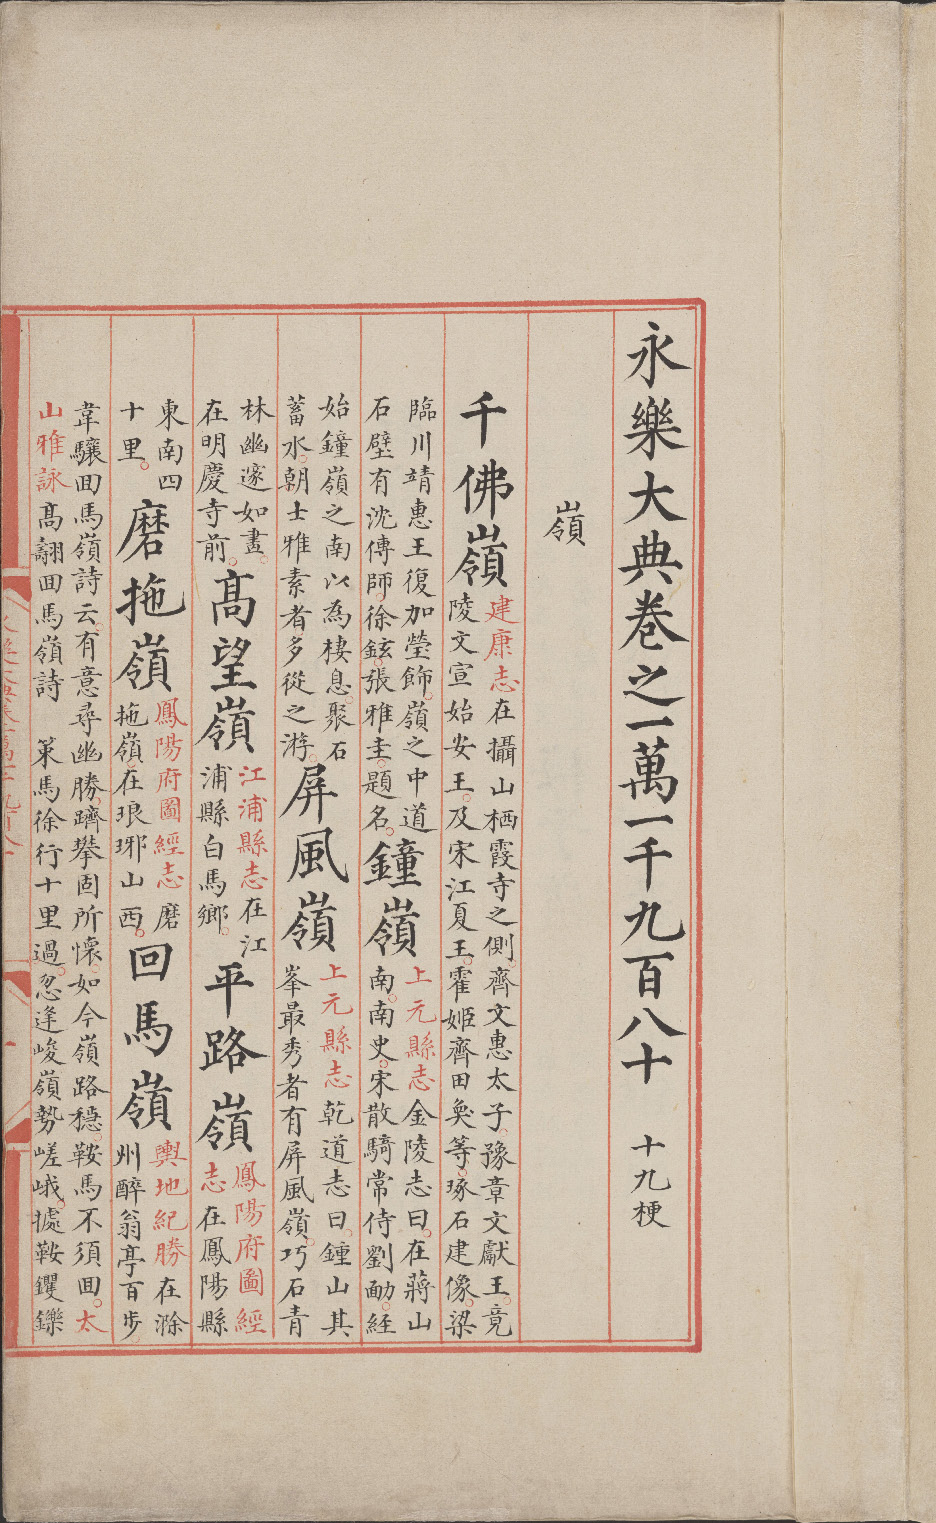 永樂大典卷之一萬一千九百八十　十九梗
嶺
千佛嶺
建康志在攝山栖霞寺之側齊文惠太子豫章文獻王竟
陵文宣始安王及宋江夏王霍姬齊田奐等琢石建像梁
臨川靖惠王復加瑩飾嶺之中道
石壁有沈傳師徐鉉張雅圭題名
鐘嶺
上元縣志金陵志曰在蔣山
南南史宋散騎常侍劉勔經
始鐘嶺之南以為棲息聚石
蓄水朝士雅素者多從之游
屏風嶺
上元縣志乾道志曰鍾山其
峯最秀者有屏風嶺巧石青
林幽邃如畫
在明慶寺前
高望嶺
江浦縣志在江
浦縣白馬鄉
平路嶺
鳳陽府圖經
志在鳳陽縣
東南四
十里
磨拖嶺
鳳陽府圖經志磨
拖嶺在琅琊山西
回馬嶺
輿地紀勝在滁
州醉翁亭百步
韋驤回馬嶺詩云有意尋幽勝躋攀固所懷如今嶺路穩鞍馬不須回太
山雅詠高翿回馬嶺詩　策馬徐行十里過忽逢峻嶺勢嵯峨據鞍钁鑠